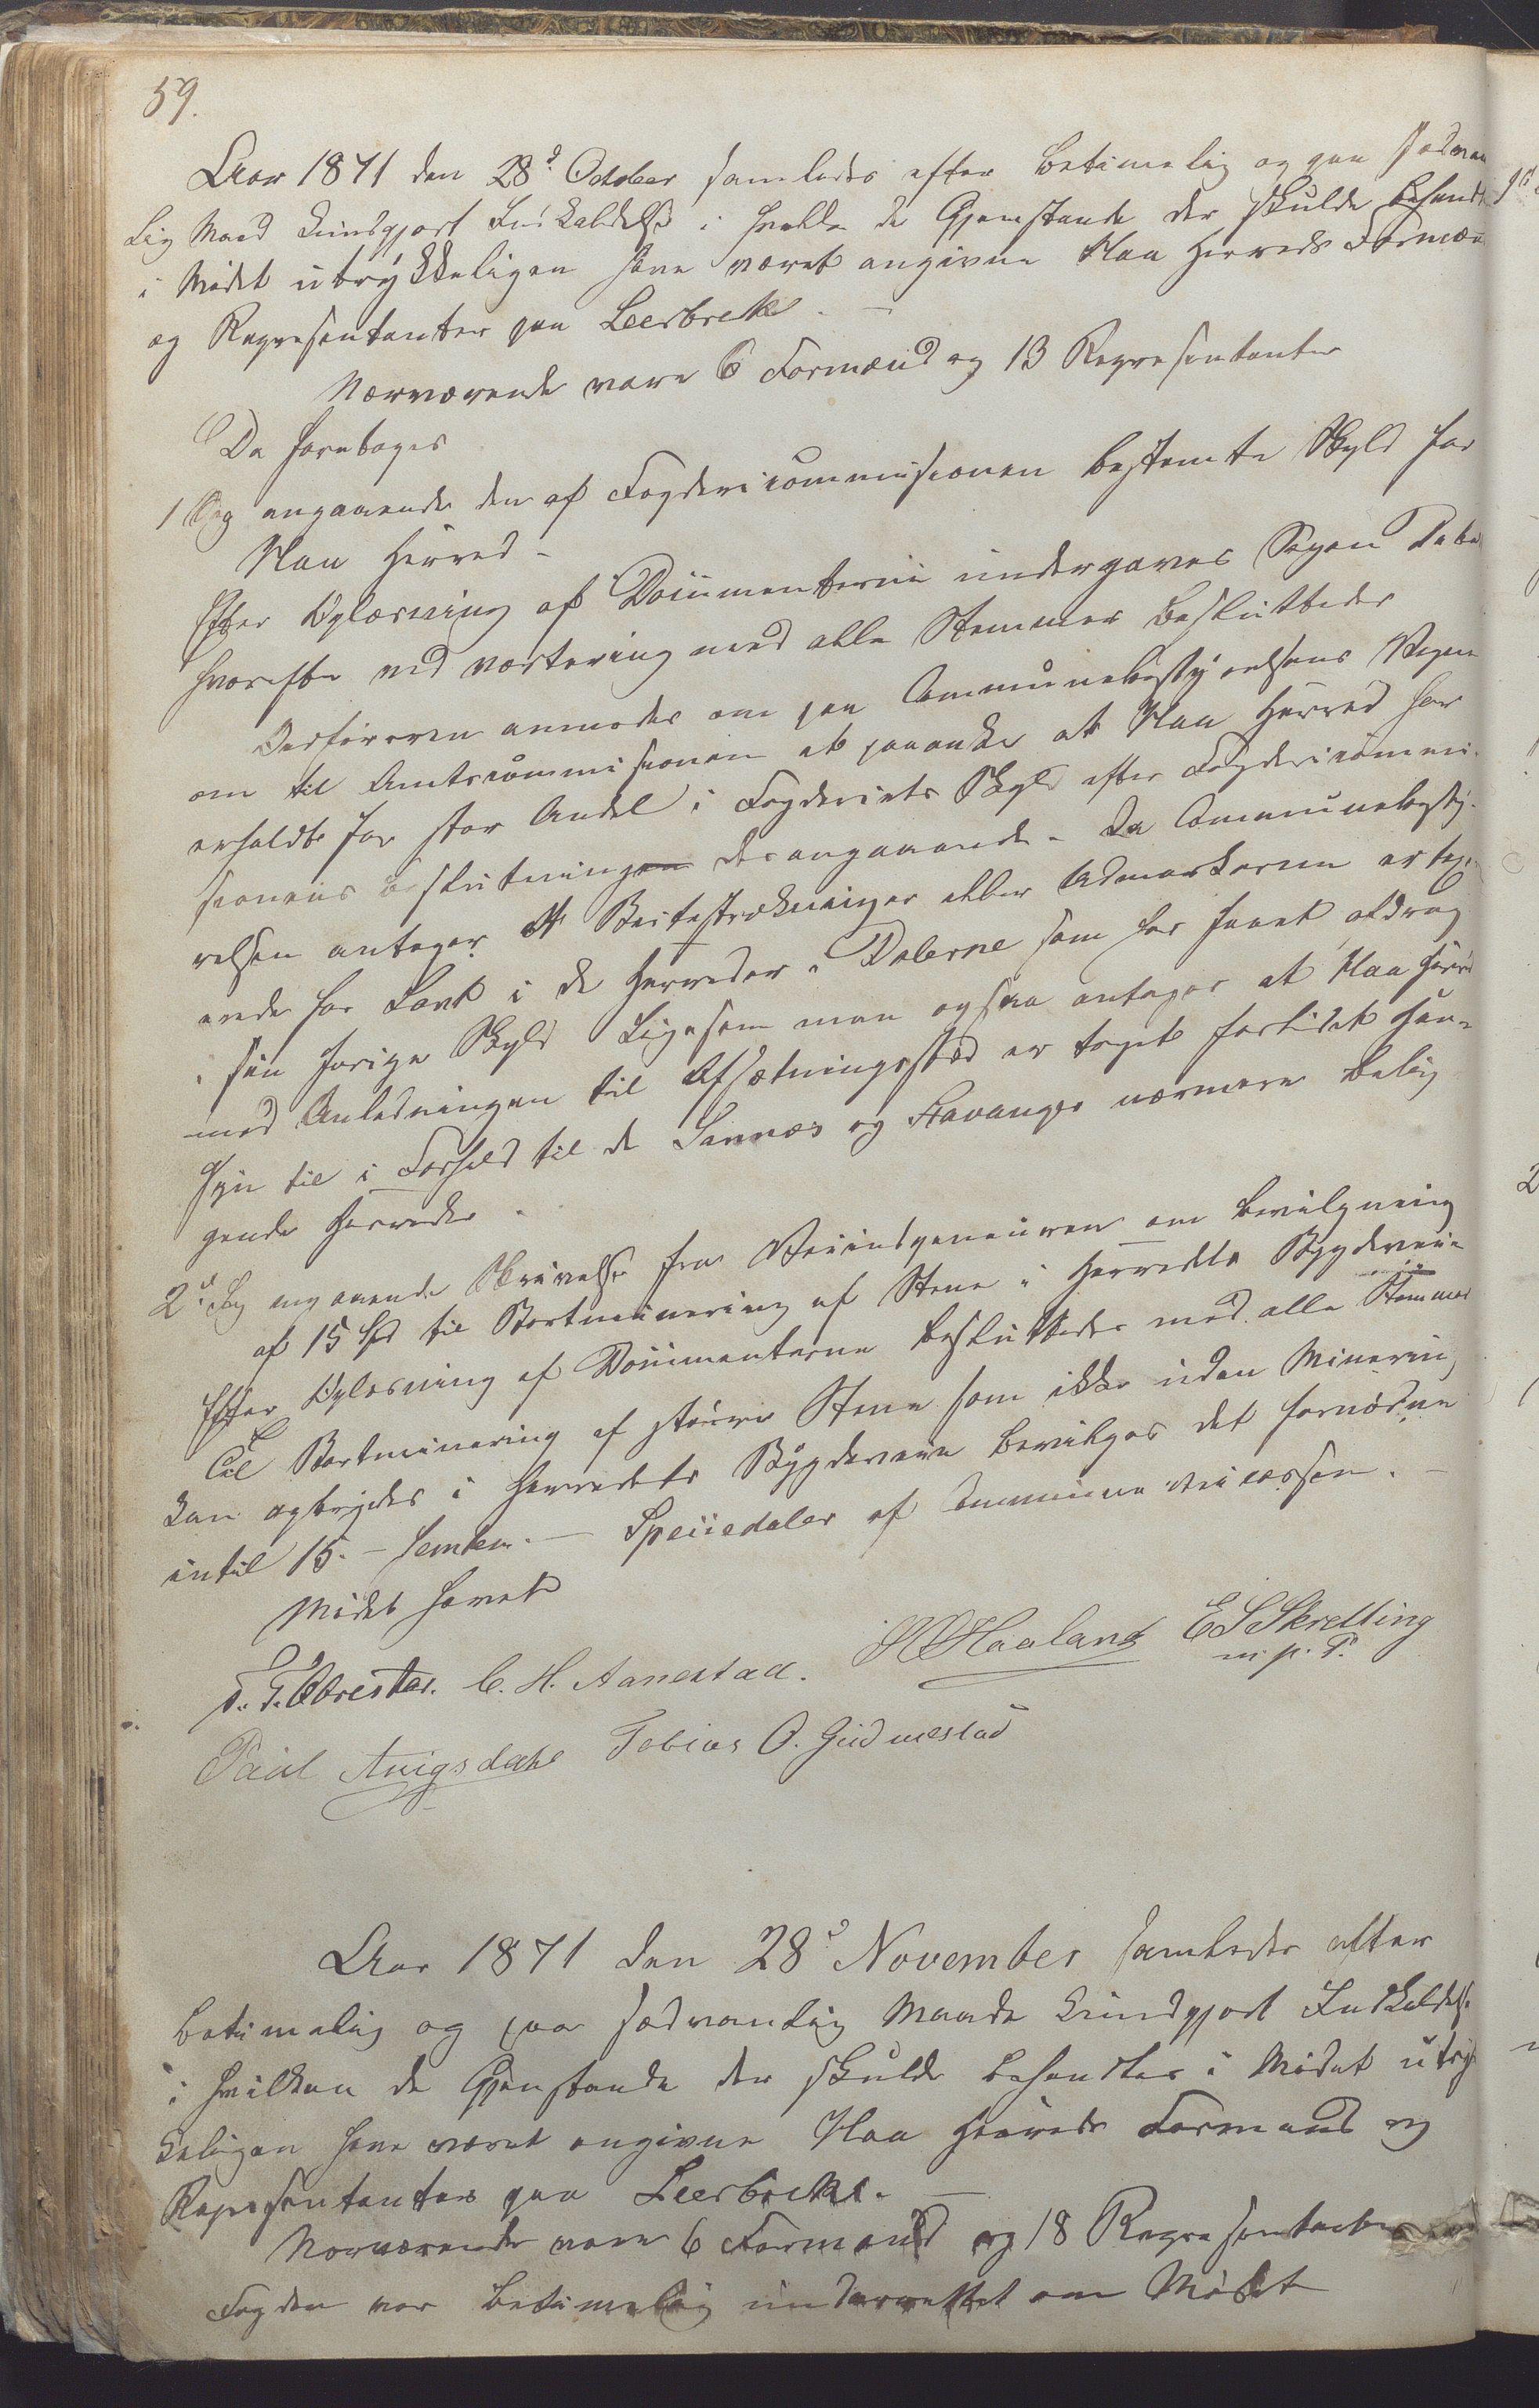 59.
Aar 1871 den 28d October samledes efter betimelig og paa sædvan
lig Maad kundgjort Indkaldelse i hvilke de Gjenstande der skulde behandl
i Mødet utrykkeligen have været angivne Haa Herreds Formænd
og Repræsentanter paa Leerbrekk. –
Nærværende vare 6 Formænd og 13 Repræsentanter
Da foretoges
1 Sag angaaende den af Fogdericommissionen bestemte Skyld for
Haa Herred –
Efter Oplæsning af Documenterne undergaves Sagen Debat
hvorefter ved vortering med alle Stemmer besluttedes
Ordføreren anmodes om paa Communebestyrelsens Vegne
om til Amtscommissionen at paaanke at Haa Herred har
erholdt for stor Andel i Fogderiets Skyld efter Fogdericommi-
sionens beslutning desangaaende – Da Communebesty-
relsen antager At Beitestrækninger eller Udmarkerne er tax-
erede for Lavt i de Herreder i Dalerne som har faaet afdrag
i sin forige Skyld Ligesom man ogsaa antager at Haa Herred
med Anledningen til Afsætningssted er taget forlidet Hen-
syn til i Forhold til de Sannæs og Stavanger nærmere belig
gende Herreder.
2d Sag angaaende Skrivelse fra Veiindgeneuren om bevilgning
af 15 Spd til Bortminering af Stene i Herredets Bygdeveie
Efter Oplæsning af Documenterne besluttedes med alle Stemmer
Til Bortminering af større Stene som ikke uden Minering
kan opbrydes i Herredets Bygdeveie bevilges det fornødne
intil 15 – femten – Speciedaler af Communeveicassen. –
Mødet hævet
T. T. Obrestad. C. H. Aanestad. Haaland E S Skretting
m. p. P.
Paul Auigsdahl Tobias O. Gudmestad
Aar 1871 den 28d November samledes efter
betimelig og paa sædvanlig Maade kundgjort Indkaldelse
i hvilken de Gjenstande der skulde behandles i Mødet utryk
keligen have været angivne Haa Herreds Formænd og
Repræsentanter paa Leerbrekk. –
Nærværende vare 6 Formænd og 18 Repræsentanter
Fogden var betimelig underrettet om Mødet